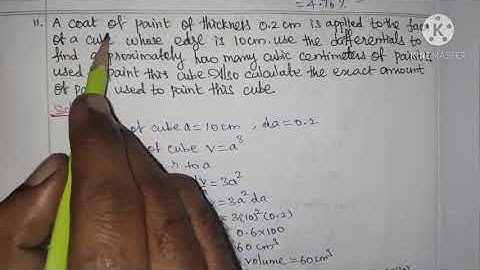 = 4.76%
11. A coat of paint of thickness 0.2 cm is applied to the
of a cube whose edge is 10cm. use the differentials to
find approximately how many cubic centimeters of
used paint this cube. Also calculate the exact amount
of used to paint this cube.
of cube a = 10cm, da = 0.2
of cube v = a³
to a
= 3a²
= 3a² da
= 3(10)²(0.2)
= 0.6×100
60 cm³
volume = 60cm³
KINEMASTER